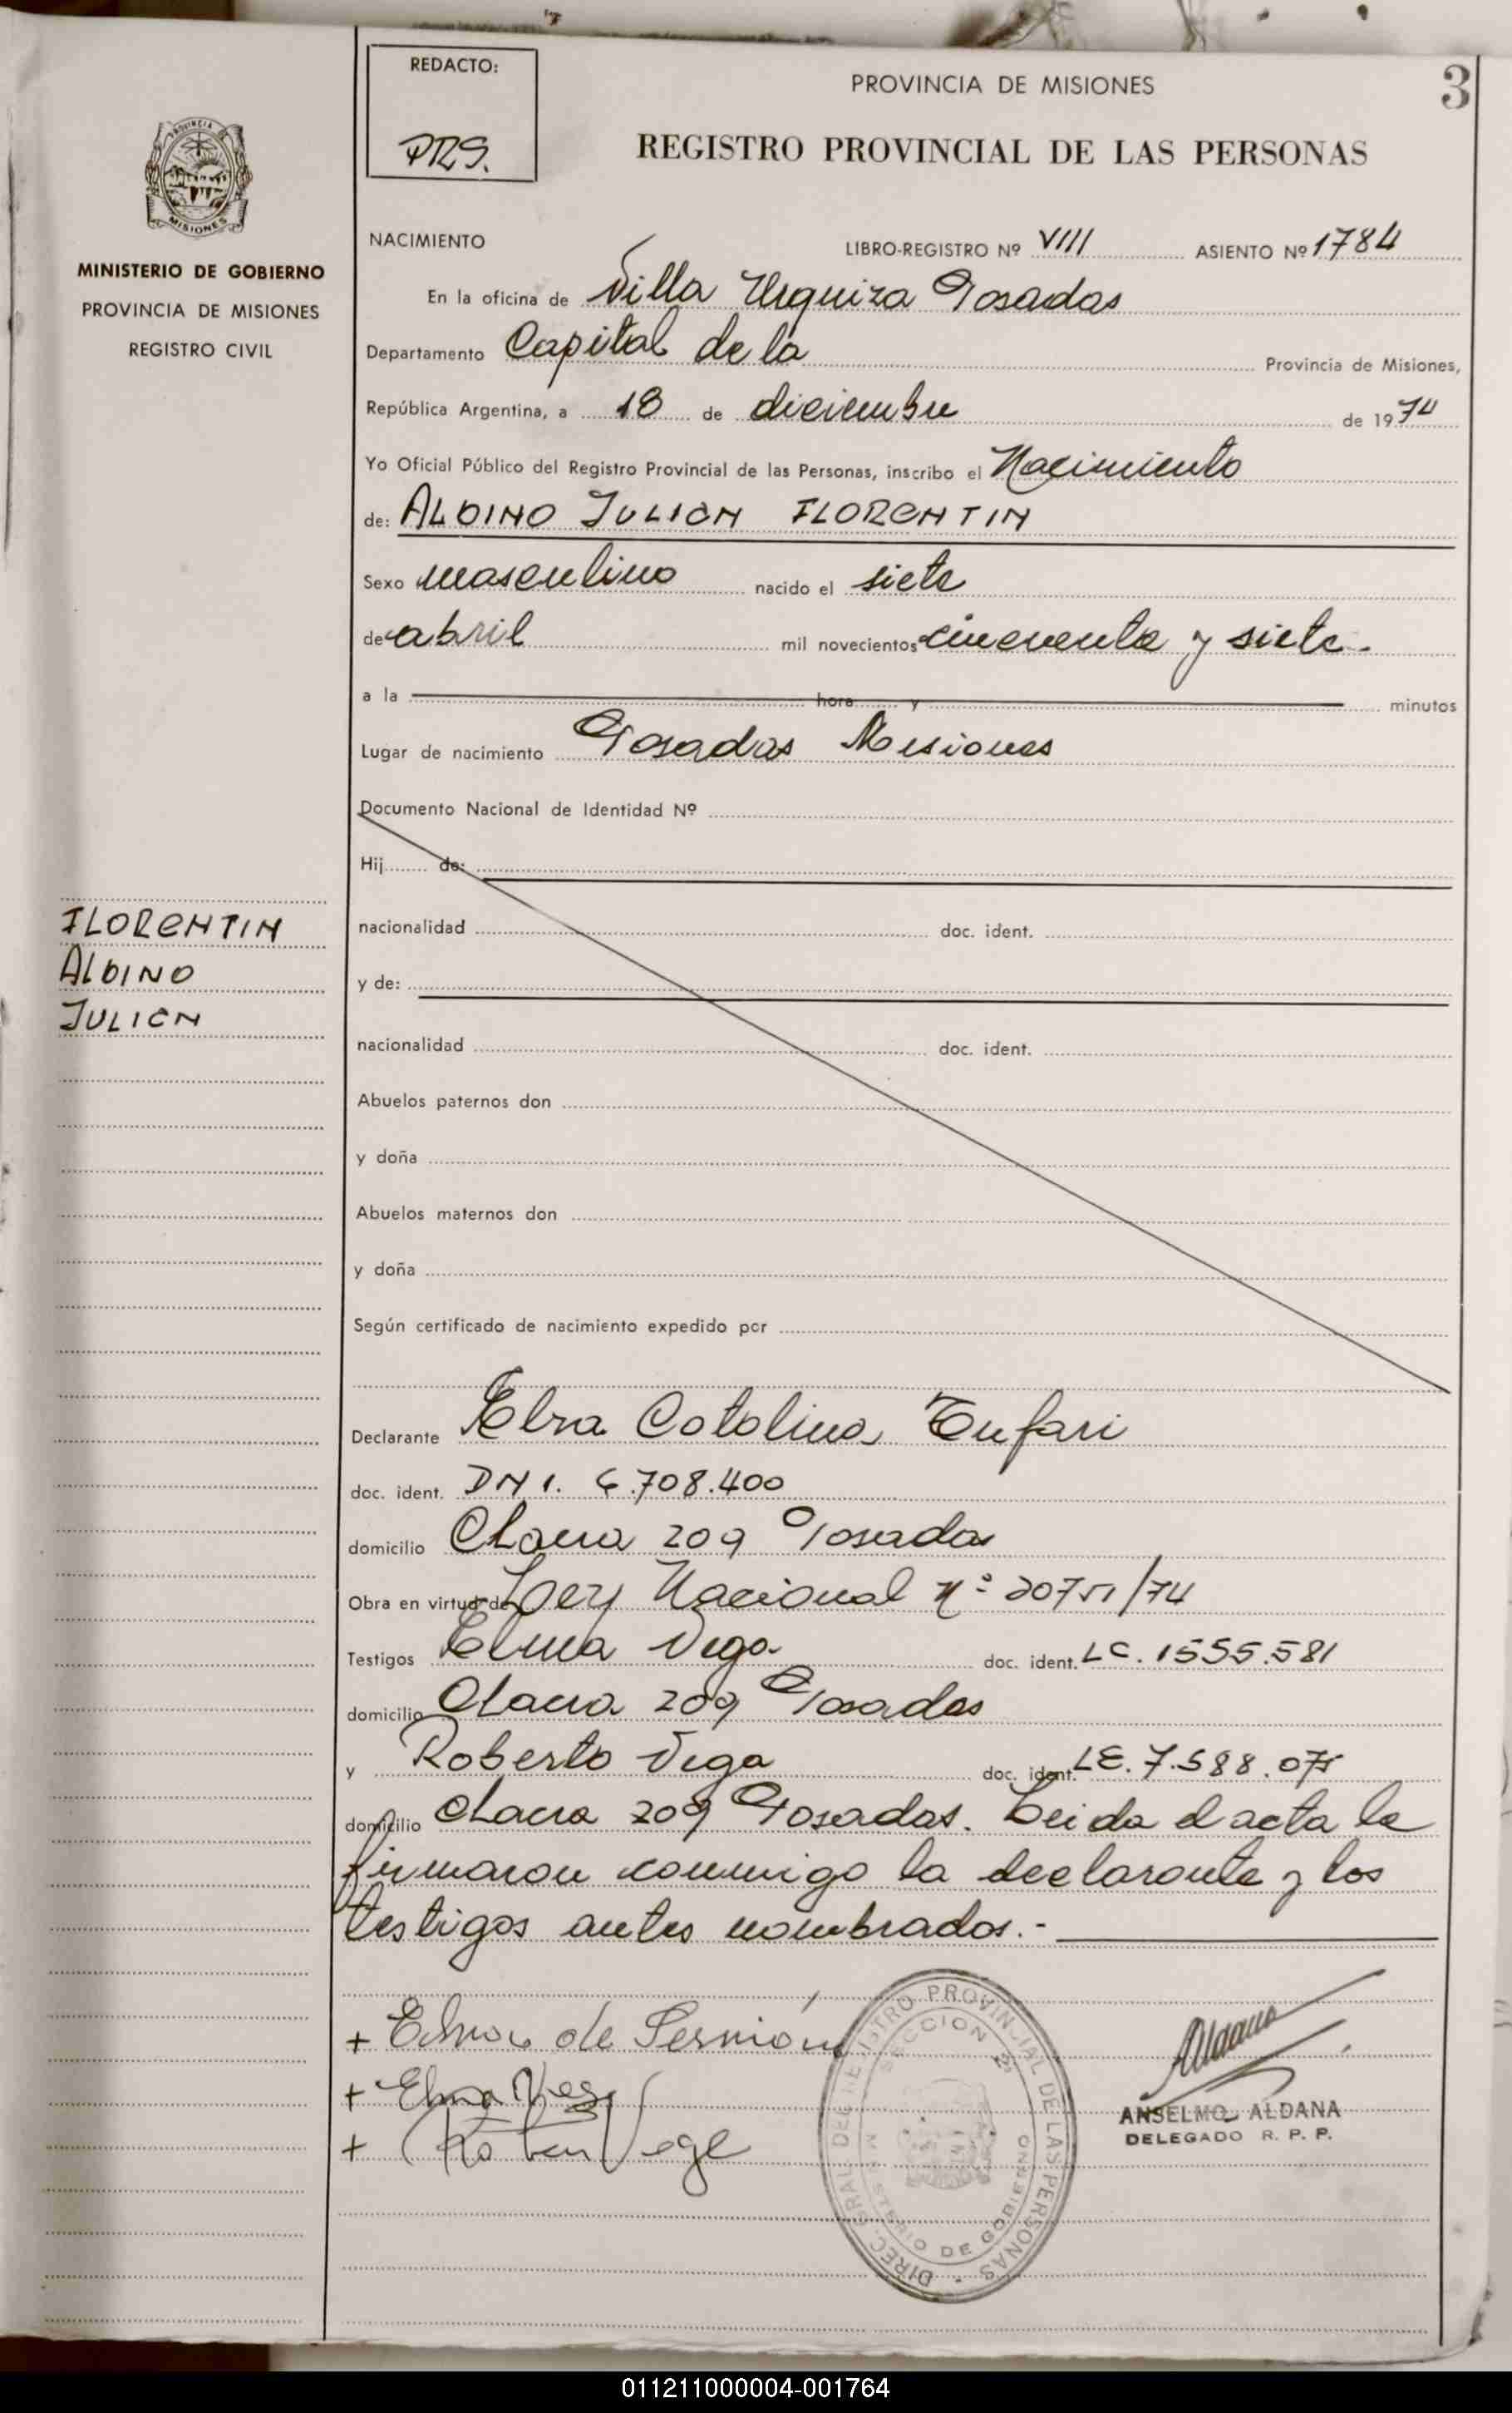 REDACTO:
PRS.
PROVINCIA DE MISIONES
3
REGISTRO PROVINCIAL DE LAS PERSONAS
PROVINCIA
MISIONES
MINISTERIO DE GOBIERNO
PROVINCIA DE MISIONES
REGISTRO CIVIL
NACIMIENTO LIBRO-REGISTRO Nº VIII ASIENTO Nº 1784
En la oficina de Villa Urquiza Posadas
Departamento Capital de la Provincia de Misiones,
República Argentina, a 18 de diciembre de 1974
Yo Oficial Público del Registro Provincial de las Personas, inscribo el Nacimiento
de: ALBINO JULIAN FLORENTIN
Sexo masculino nacido el siete
de abril mil novecientos cincuenta y siete.
a la hora y minutos
Lugar de nacimiento Posadas Misiones
Documento Nacional de Identidad Nº
Hij de:
nacionalidad doc. ident.
y de:
nacionalidad doc. ident.
Abuelos paternos don
y doña
Abuelos maternos don
y doña
Según certificado de nacimiento expedido por
FLORENTIN
ALBINO
JULIAN
Declarante Elsa Catalina
doc. ident. DNI. 6.708.400
domicilio Chacra 209 Posadas
Obra en virtud de Ley Nacional Nº 20751/74
Testigos Elma Vega doc. ident. LC. 1555.581
domicilio Chacra 209 Posadas
y Roberto Vega doc. ident. LE. 7.588.075
domicilio Chacra 209 Posadas. Leida el acta la
firmaron conmigo la declarante y los
testigos antes nombrados.-
+ de
+ Elma Vega
+ Vega
DIREC. GRAL. DEL REGISTRO PROVINCIAL DE LAS PERSONAS
SECCION 2ª
MINISTERIO DE GOBIERNO
Aldana
ANSELMO ALDANA
DELEGADO R. P. P.
011211000004-001764